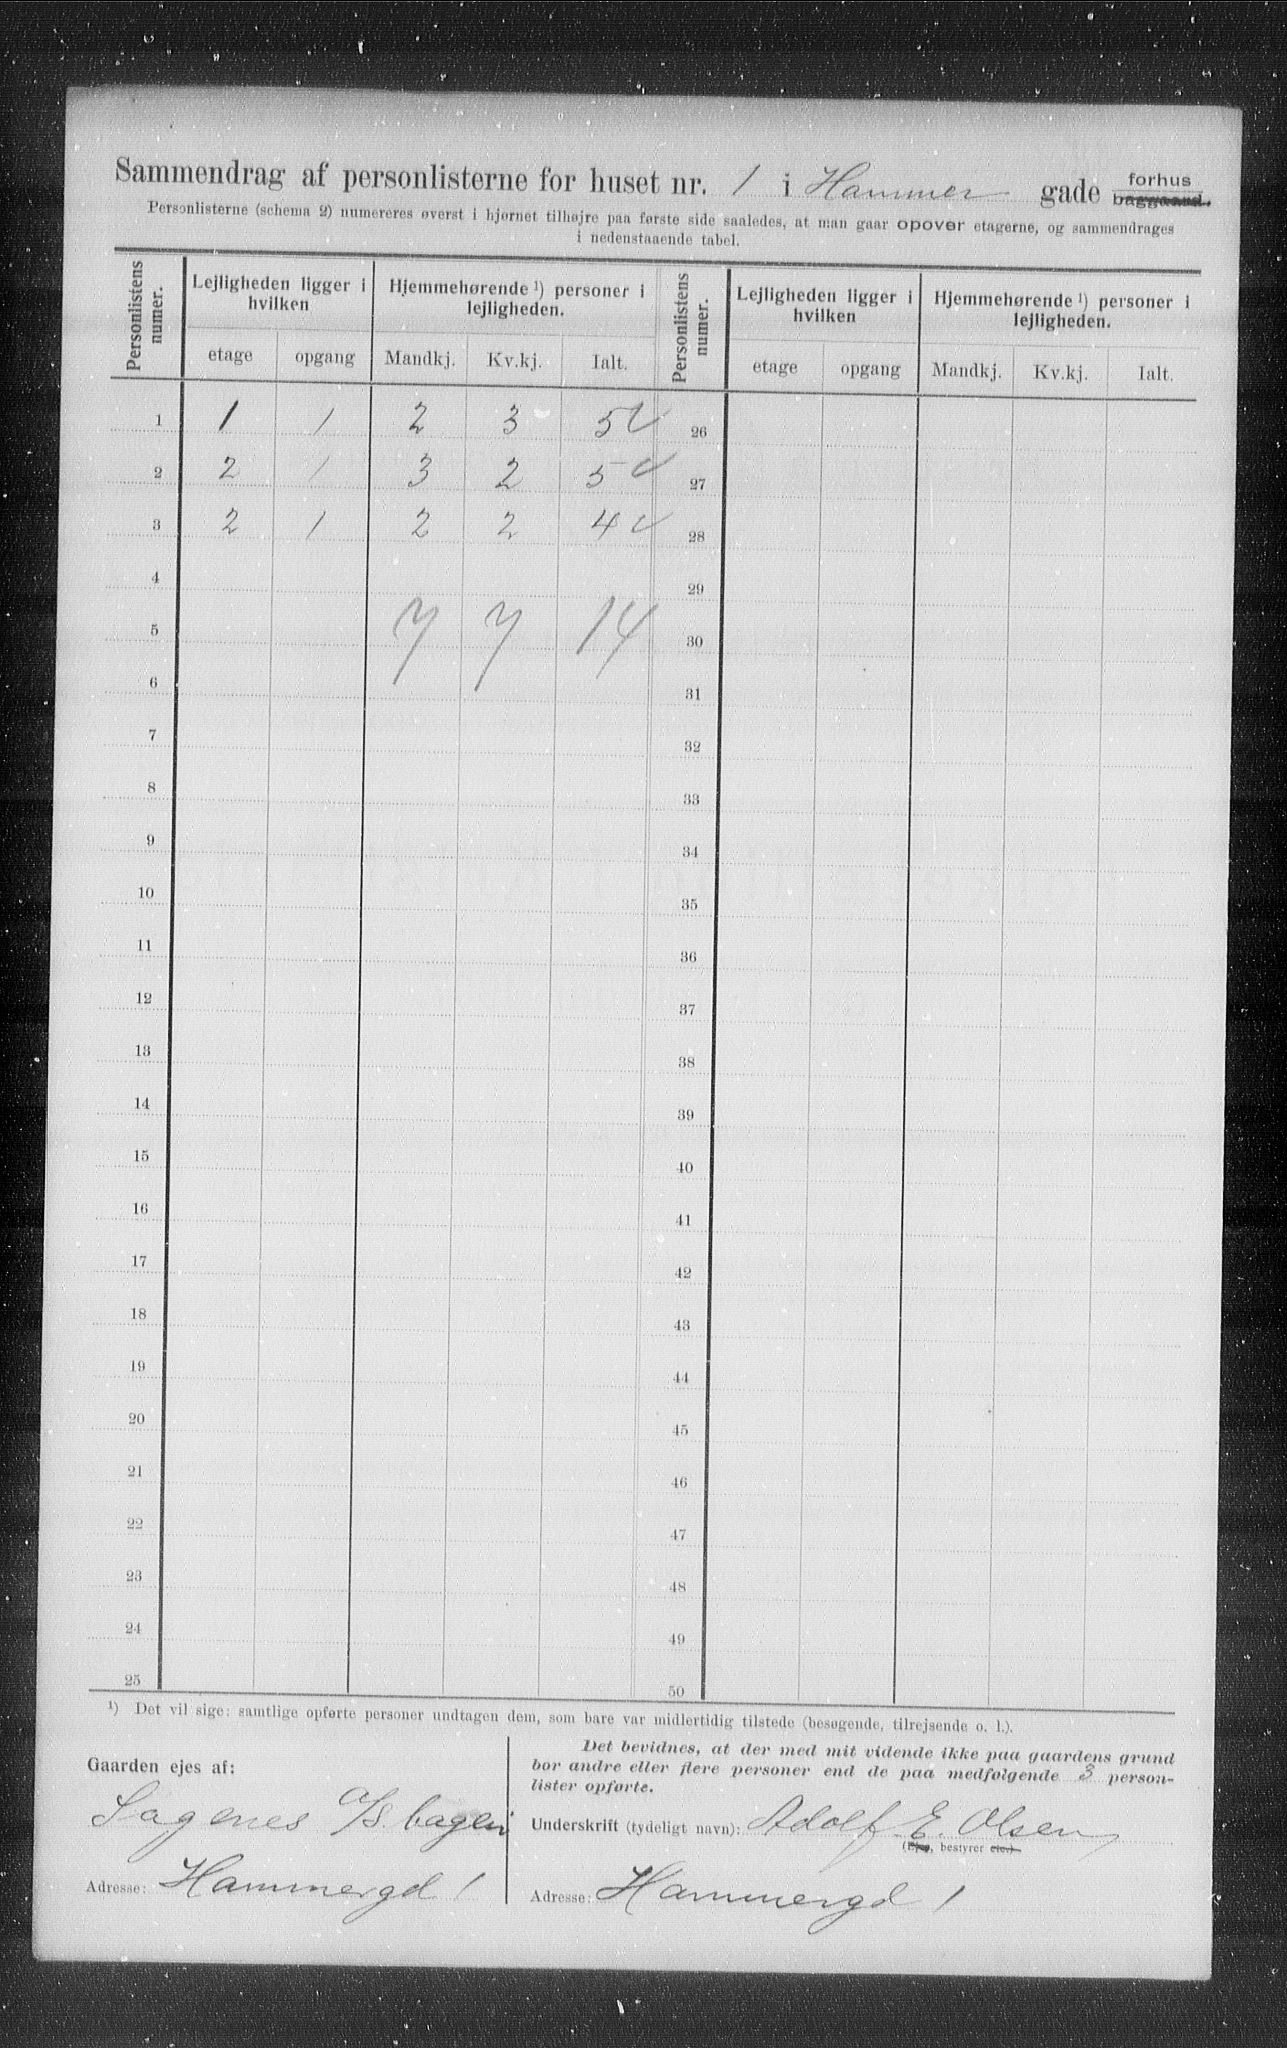 Sammendrag af personlisterne for huset nr. 1 i Hammer gade forhus baggaard.
Personlisterne (schema 2) numereres øverst i hjørnet tilhøjre paa første side saaledes, at man gaar opover etagerne, og sammendrages
i nedenstaaende tabel.
Personlistens numer. Lejligheden ligger i hvilken Hjemmehørende ¹) personer i lejligheden. Personlistens numer. Lejligheden ligger i hvilken Hjemmehørende ¹) personer i lejligheden.
etage opgang Mandkj. Kv.kj. Ialt. etage opgang Mandkj. Kv.kj. Ialt.
1 1 1 2 3 5 26
2 2 1 3 2 5 27
3 2 1 2 2 4 28
4 29
5 7 7 14 30
6 31
7 32
8 33
9 34
10 35
11 36
12 37
13 38
14 39
15 40
16 41
17 42
18 43
19 44
20 45
21 46
22 47
23 48
24 49
25 50
¹) Det vil sige: samtlige opførte personer undtagen dem, som bare var midlertidig tilstede (besøgende, tilrejsende o. l.).
Gaarden ejes af:
Sagenes A/S bageri
Adresse: Hammergd 1
Det bevidnes, at der med mit vidende ikke paa gaardens grund
bor andre eller flere personer end de paa medfølgende 3 person-
lister opførte.
Underskrift (tydeligt navn): Adolf E. Olsen
(Ejer, bestyrer etc.)
Adresse: Hammergd 1